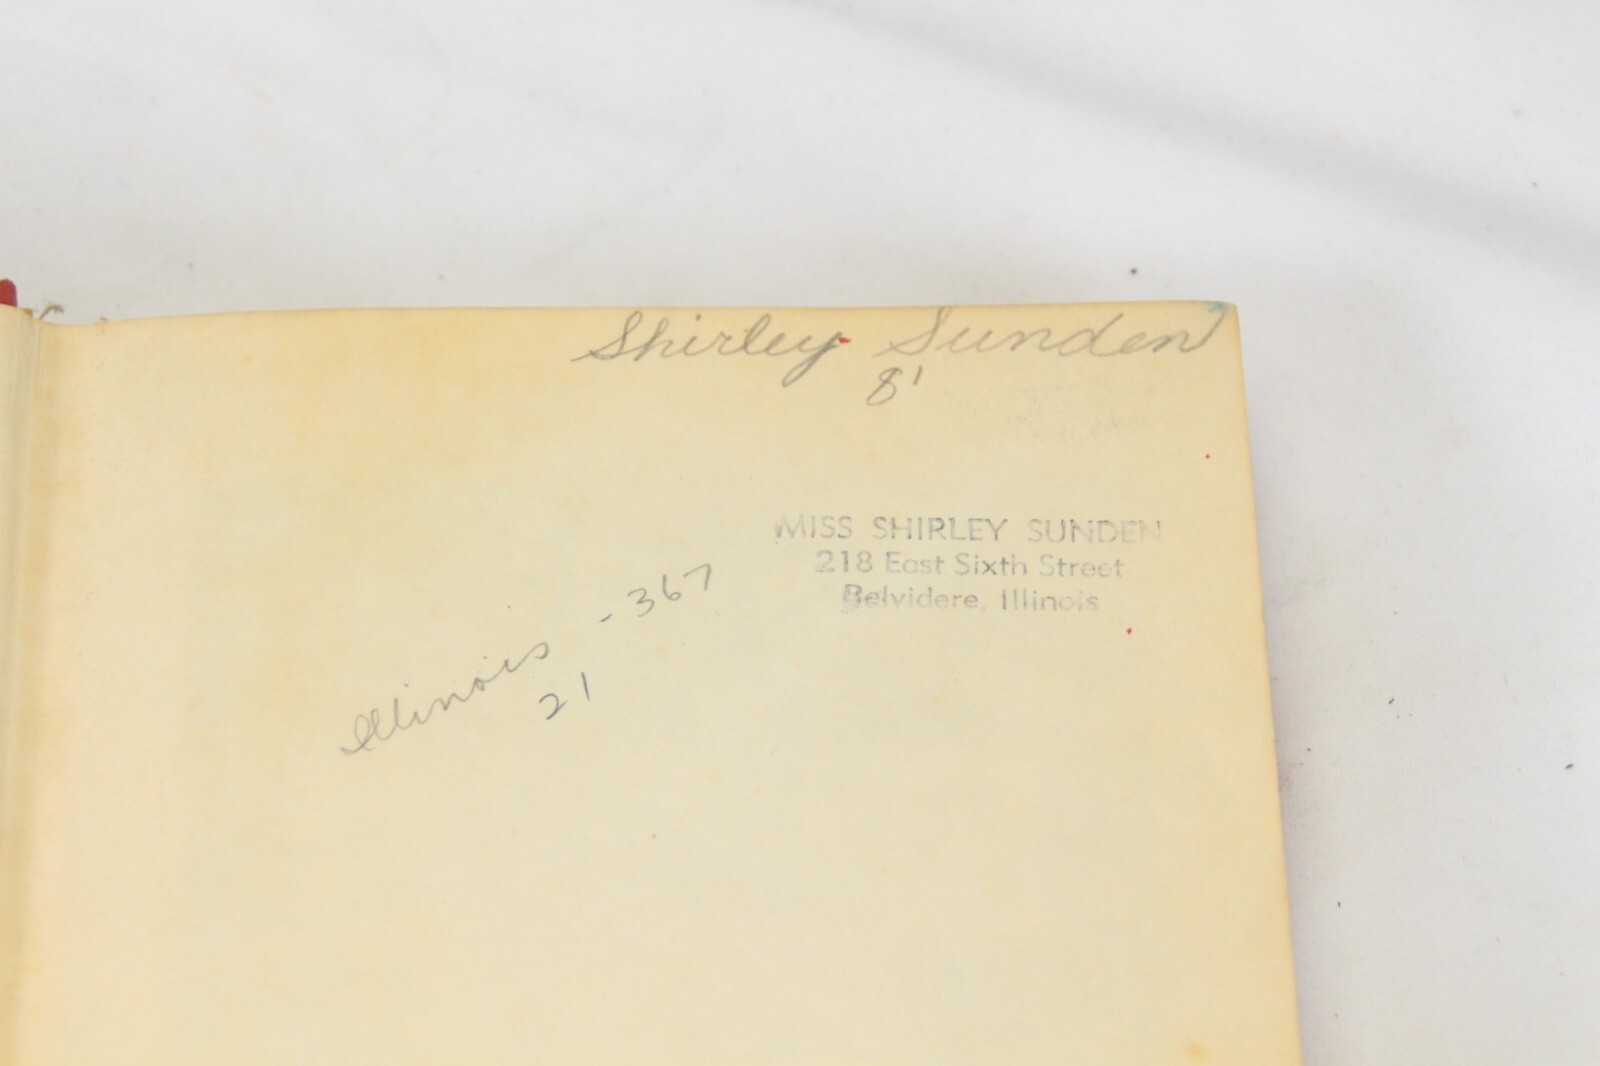 Shirley Sunden
8'
MISS SHIRLEY SUNDEN
218 East Sixth Street
Belvidere, Illinois
Illinois - 367
21